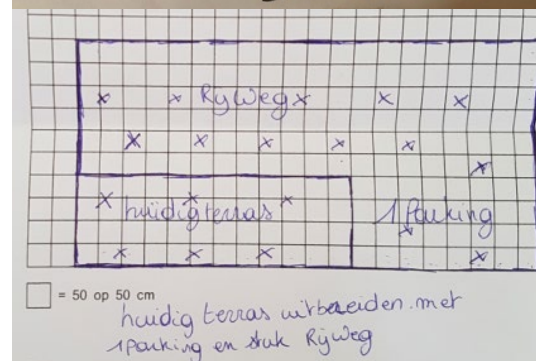 Rijweg
huidig terras
1 Parking
= 50 op 50 cm
huidig terras uitbreiden met
1 parking en stuk Rijweg